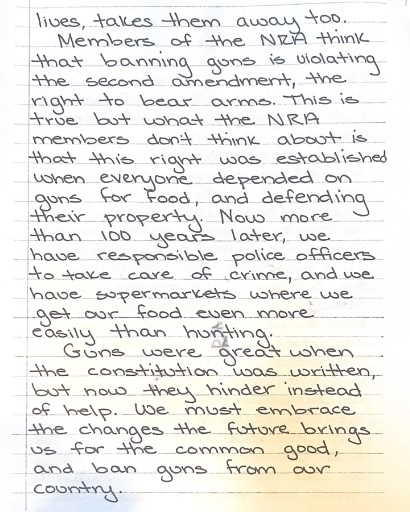 lives, takes them away too.
Members of the NRA think
that banning guns is violating
the second amendment, the
right to bear arms. This is
true but what the NRA
members don't think about is
that this right was established
when everyone depended on
guns for food, and defending
their property. Now more
than 100 years later, we
have responsible police officers
to take care of crime, and we
have supermarkets where we
get our food even more
easily than hunting.
Guns were great when
the constitution was written,
but now they hinder instead
of help. We must embrace
the changes the future brings
us for the common good,
and ban guns from our
country.